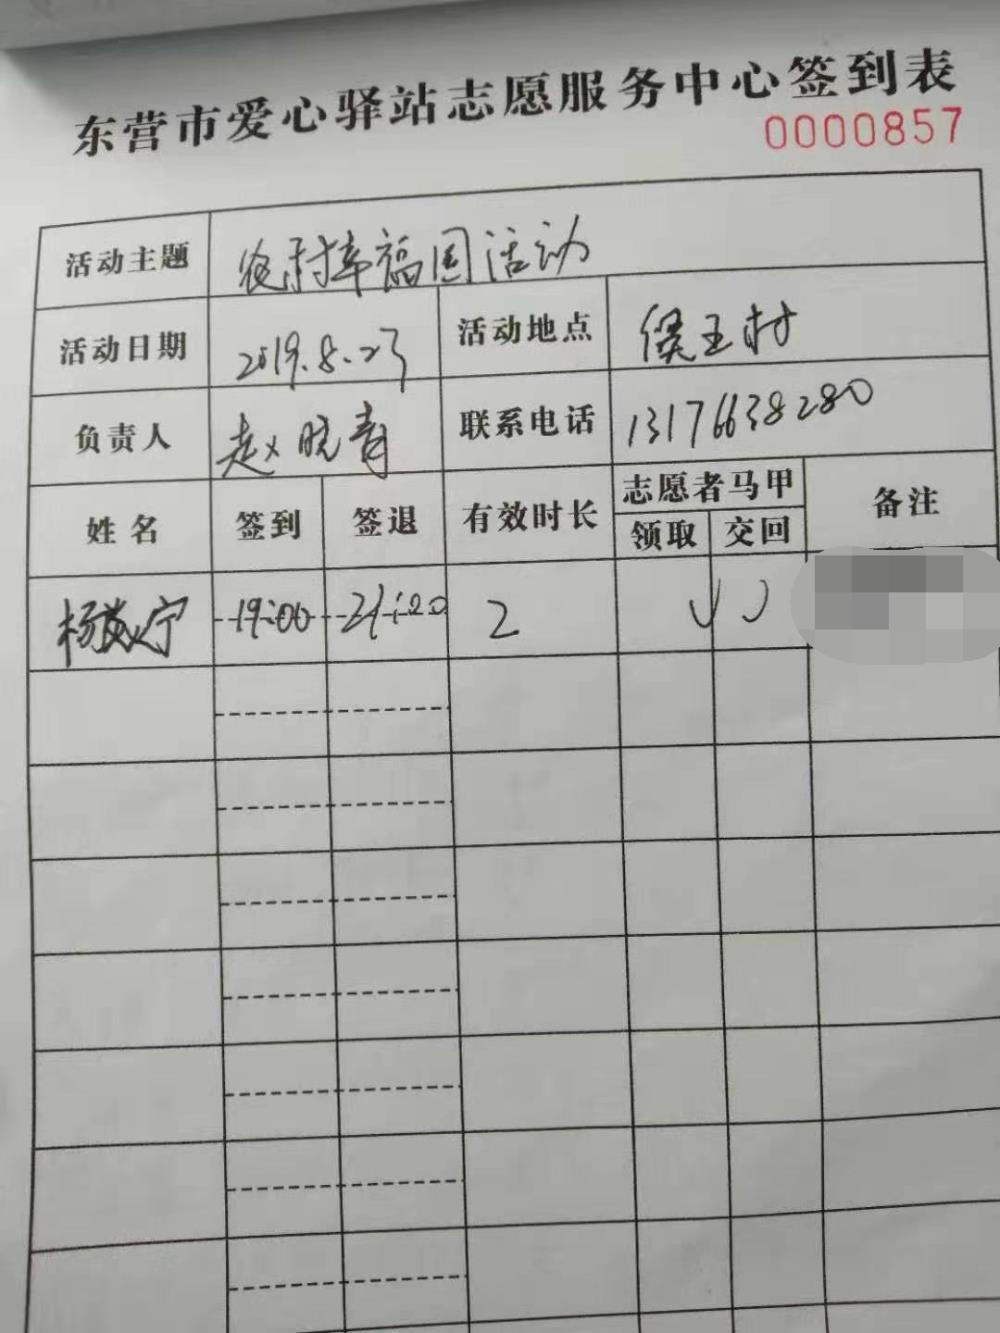 东营市爱心驿站志愿服务中心签到表
0000857
活动主题 农村幸福园活动
活动日期 2019.8.23 活动地点 侯王村
负责人 赵晓青 联系电话 13176638280
姓名 签到 签退 有效时长 志愿者马甲 备注
领取 交回
19:00 21:20 2